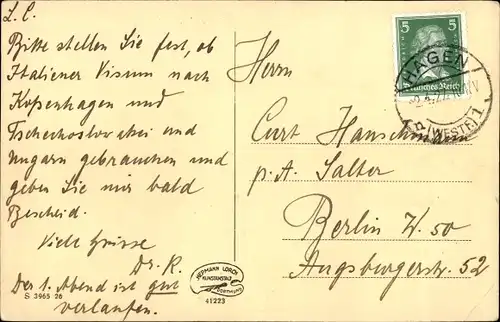 L. C.
Bitte stellen Sie fest, ob
Italiener Visum nach
Kopenhagen und
Tschechoslovakei und
Ungarn gebrauchen und
geben Sie mir bald
Bescheid.
Viele Grüsse
Dr. R.
Der 1. Abend ist gut
verlaufen.
S 3965 26
HERMANN LORCH
KUNSTANSTALT
DORTMUND
41223
5 5
Deutsches Reich
HAGEN
(WESTF) 1
Herrn
Curt Hanschmann
p. A. Salter
Berlin W. 50
Augsburgerstr. 52